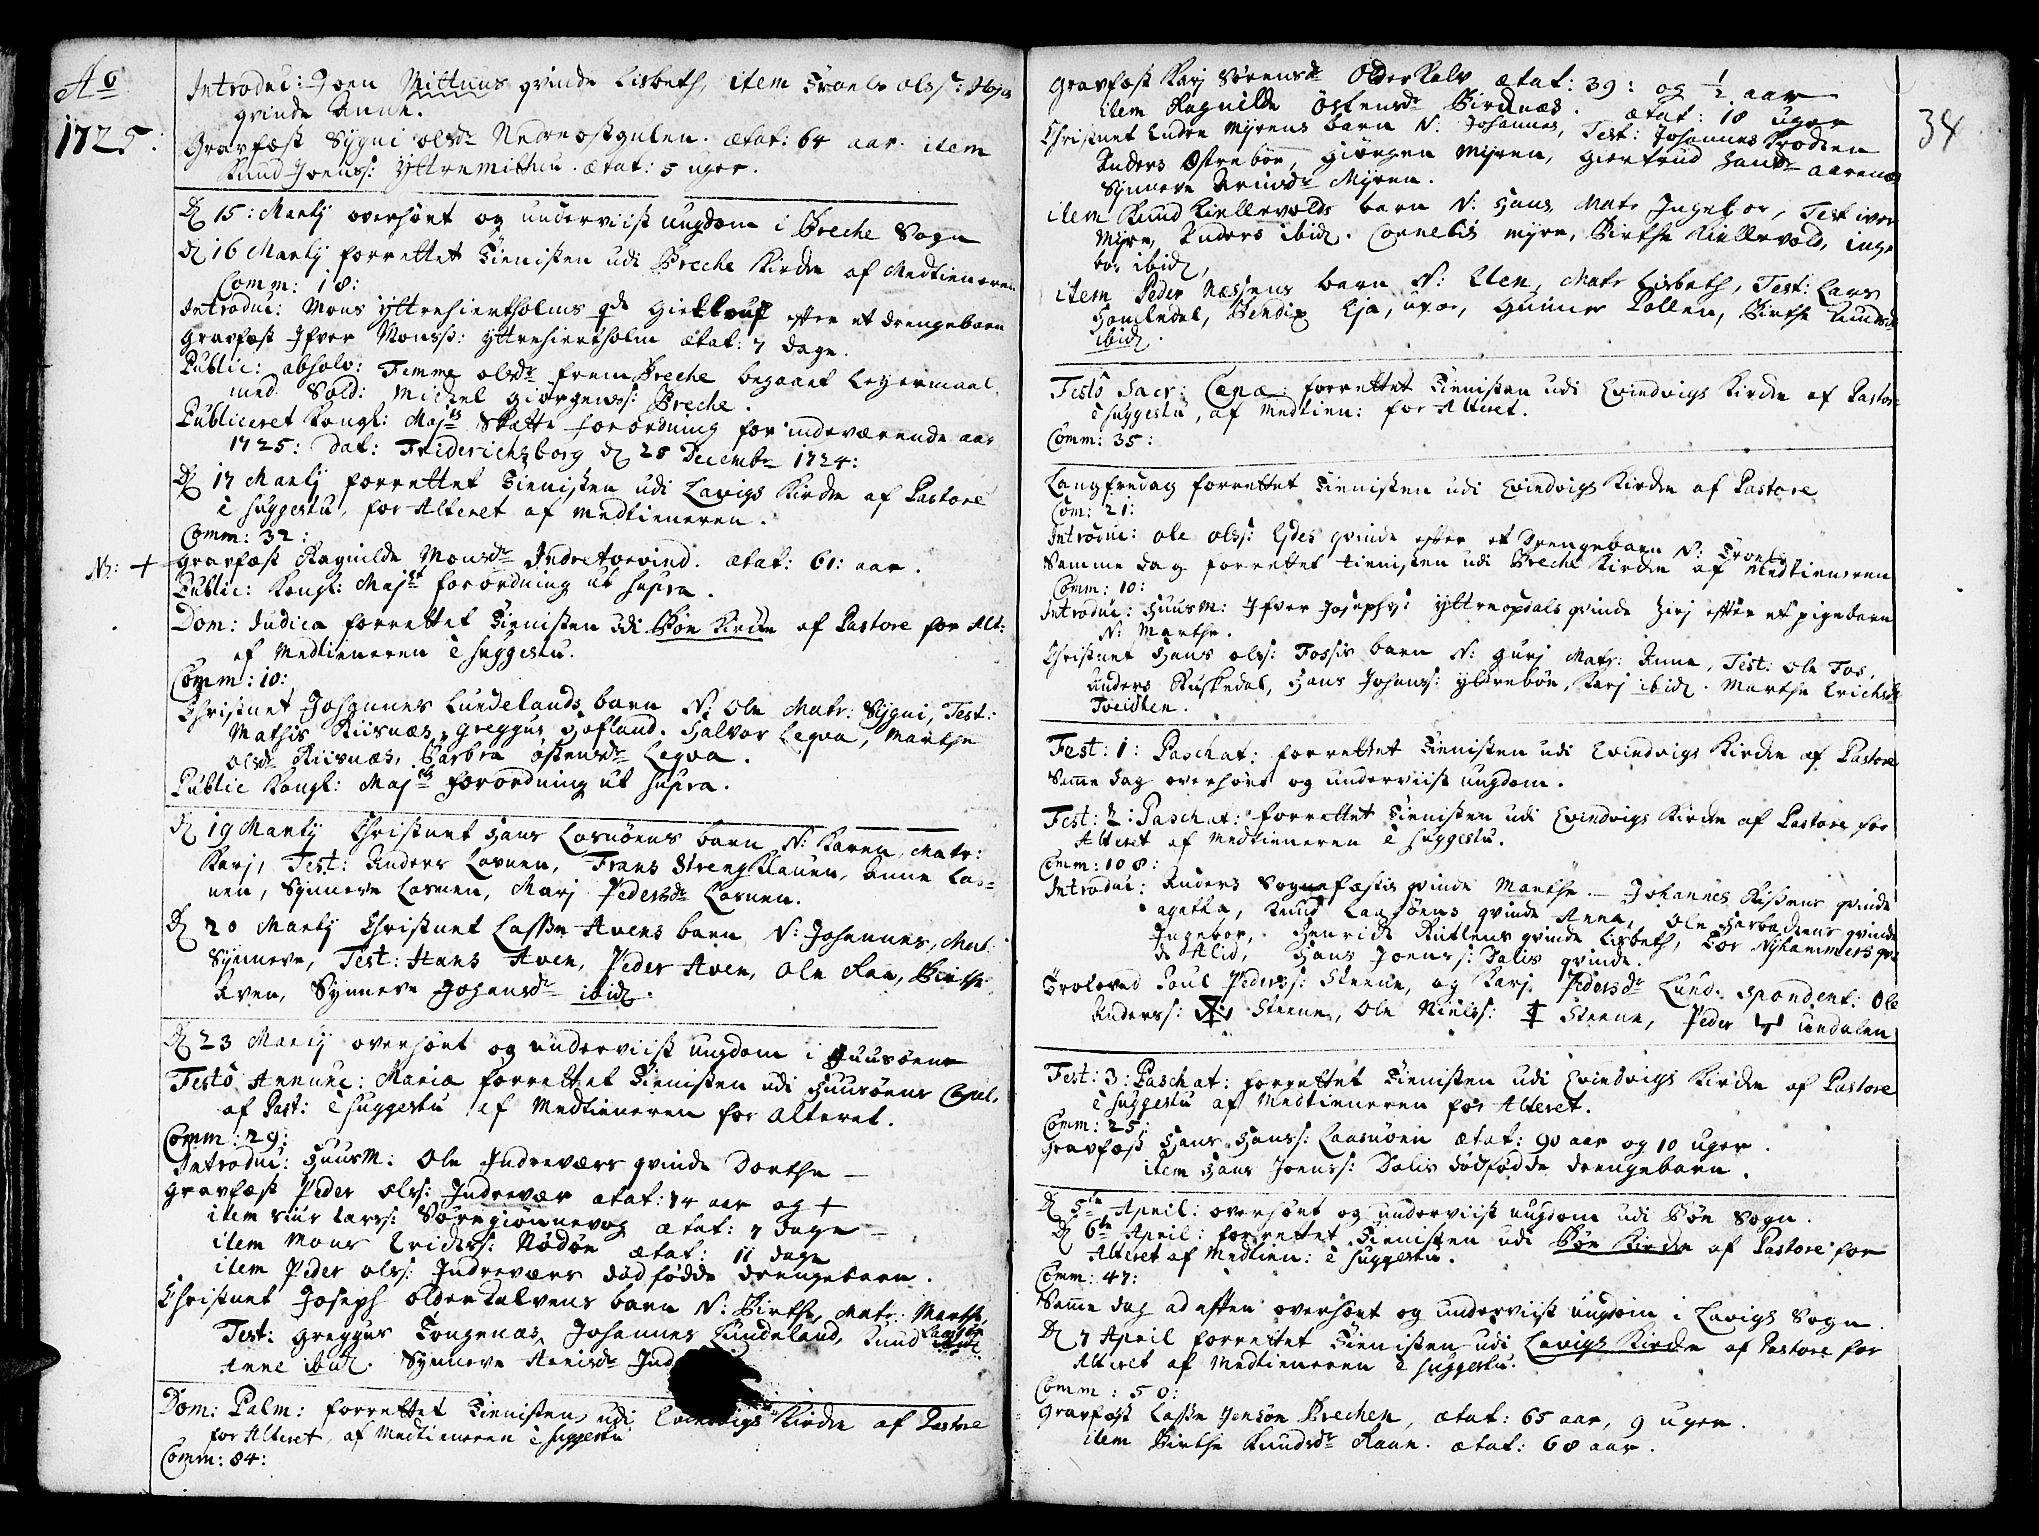 Ao
1725:
Introduc: Joen Mittuns qvinde Lisbeth, item Troels Olss:
qvinde Anne.
Gravfæst Sygni Olsdr Nedreostgulen. ætat: 64 aar. item
Knud Joenss: Yttremittun. ætat: 5 uger.
D 15: Martij overhört og underviist ungdom i Breche Sogn
D 16 Martij forrettet Tienisten udi Breche Kirche af Medtieneren
Comm: 18:
Introduc: Mons Yttrehiertholms qde efter et drengebarn
Gravfæst Ifver Monss: Yttrehiertholm ætat: 7 dage.
Public: absolv: Femme Olsdr frem Breche begaaet Leyermaal
med Sold: Michel Giörgenss: Breche.
Publiceret Kongl: Majts Skatte forordning for indeværende aar
1725: Dat: Friderichsborg d 28 Decembr 1724:
D 17 Martij forrettet Tienisten udi Lavigs Kirche af Pastore
è suggestu, for Alteret af Medtieneren.
Comm: 32:
Nb: + Gravfæst Ragnilde Monsdr Indre Aarvind. ætat: 61: aar.
Public: Kongl: Majst forordning ut supra.
Dom: Judica forrettet Tienisten udi Böe Kirche af Pastore for Alt:
af Medtieneren è suggestu.
Comm: 10:
Christnet Johannes Lundelands barn N: Ole Matr: Sygni, Test:
Mathis Riisnæs, Greggus Hofland. Halvor Leqva, Marthe
Olsdr Riisnæs, Barbra Östensdr Leqva.
Public Kongl: Majts forordning ut supra.
D 19 Martij Christnet Hans Losnöens barn N: Karen, Matr:
Karj, Test: Anders Losnen, Frans Streng Rauen, Anne Los=
nen, Synneve Losnen, Marj Pedersdr Losnen.
D 20 Martij Christnet Lasse Avens barn N: Johannes, Mat:
Synneve, Test: Hans Aven, Peder Aven, Ole Ran, Birthe
Aven, Synneve Johansdr ibid.
D 23 Martij overhört og underviist ungdom i Huusöene
Festo Annunc: Maria forrettet Tienisten udi Huusöens Capel.
af Past: è suggestu af Medtieneren for Alteret.
Comm: 29:
Introduc: Huusm: Ole Indreværs qvinde Dorthe —
Gravfæst Peder Olss: Indrevær ætat: 74 aar og +
item Siur Larss: ætat: 7 dage —
item Mons Erichss: Nödöe ætat: 11 dage
item Peder Olss: Indreværs död födde drengebarn.
Christnet Joseph Olderkalvens barn N: Birthe, Matr: Marthe,
Test: Greggus Tongenæs, Johannes Lundeland, Knud
Anne ibid. Synneve Ind
Dom: Palm: forrettet Tienisten udi Evindvigs Kirche af Pastore
for Alteret, af Medtieneren è suggestu
Comm: 84:
34
Gravfæst Karj Sörensdr Olderkalv ætat: 39: og ½ aar
item Ragnilde Östensdr Birchnæs. ætat: 18 uger
Christnet Endre Myrens barn N: Johannes, Test: Johannes Brochen
Anders Östreböe, Giörgen Myren, Giertrud Hansdr
Synneve Myren.
item Knud Kiellevolds barn N: Hans, Matr Ingebor, Test iver
Myre, Anders ibid. Cornelis Myre, Birthe Kiellevold, inge
bor ibid,
item Peder Næssens barn N: Elen, Matr Lisbeth, Test: Lars
Bendix Eja, Gunner Pollen, Birthe Knudsdr
ibid.
Festo Sacr: Cænæ: forrettet Tienisten udi Evindvigs Kirche af Pastore
è suggestu, af Medtien: for Alteret.
Comm: 35:
Langfredag forrettet Tienisten udi Evindvigs Kirche af Pastore
Com: 21:
Introduc: Ole Olss: Eydes qvinde efter et Drengebarn N: Troels
Samme dag forrettet tienisten udi Breche Kirche af Medtieneren
Comm: 10:
Introduc: Huusm: Ifver Josephs: Yttreopdals qvinde Sirj efter et pigebarn
N: Marthe.
Christnet Hans Olss: Fossis barn N: Gurj Matr: Anne, Test: Ole Fos,
Anders Ruskedal, Hans Johans: Yldreböe, Karj ibid. Marthe Erichsdr
Tveidten.
Fest: 1: Paschat: forrettet Tienisten udi Evindvigs Kirche af Pastore
Same dag overhört og underviist ungdom.
Fest: 2: Paschat: forrettet Tienisten udi Evindvigs Kirche af Pastore for
Alteret af Medtieneren è suggestu.
Comm: 108:
Introduc: Anders Sognefæstis qvinde Marthe — Johannes qvinde
agatta, Knud qvinde Anna, Ole qvinde
Ingebor, Henrich Rutlens qvinde Lisbeth, Tor Nyhammers qvi
de Alid, Hans Joens: Dalis qvinde.
Troloved Poul Pederss: Steene, og Karj Pedersdr Lund. Spondent: Ole
Anderss: Steene, Ole Nielss: Steene, Peder undalen
Fest: 3: Paschat: forrettet Tienisten udi Evindvigs Kirche af Pastore
è suggestu af Medtieneren for Alteret.
Comm: 25:
Gravfæst Hans Hanss: Laasnöen ætat: 90 aar og 10 uger.
item Hans Joenss: Dalis dödfödde drengebarn.
D 5te April: overhört og underviist ungdom udi Böe Sogn.
D 6te April: forrettet Tienisten udi Böe Kirche af Pastore for
Alteret af Medtien: è suggestu.
Comm: 47:
Same dag ad aften overhört og underviist ungdom i Lavigs Sogn.
D 7 April forrettet Tienisten udi Lavigs Kirche af Pastore for
Alteret af Medtieneren è suggestu.
Comm: 50:
Gravfæst Lasse Jensön Brechen, ætat: 65 aar, 9 uger.
item Birthe Knudsdr Raae. ætat: 68 aar.